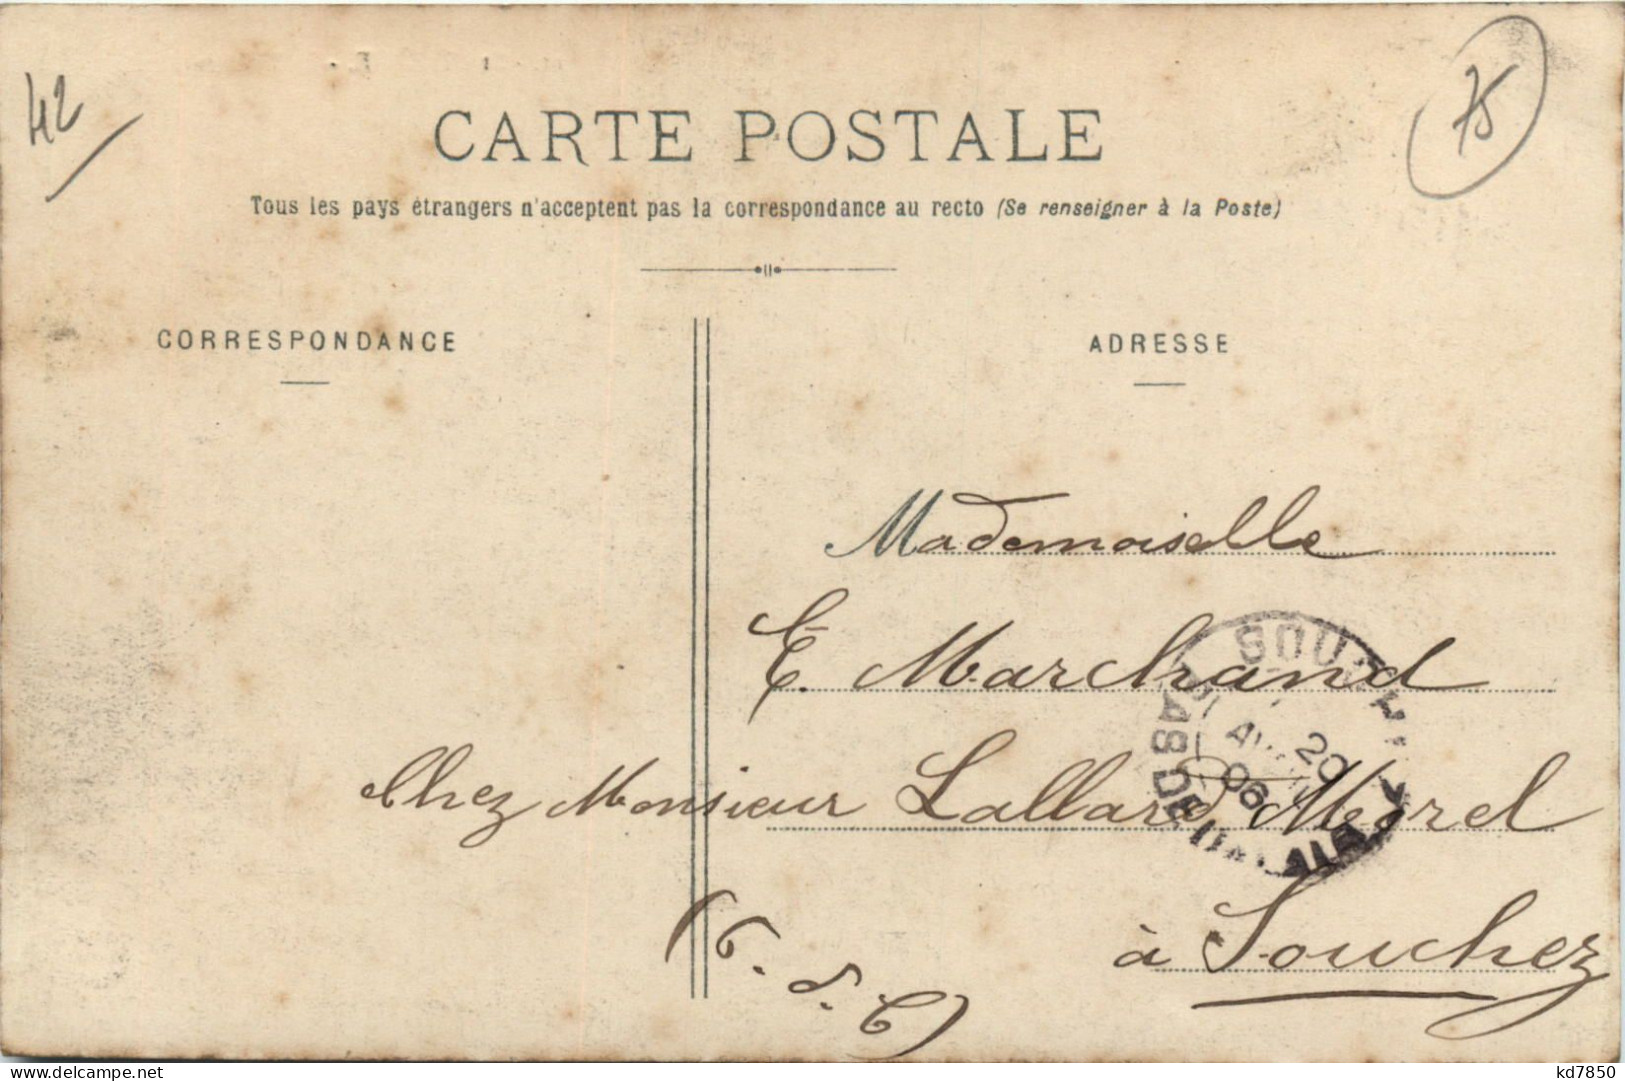 42
75
CARTE POSTALE
Tous les pays étrangers n'acceptent pas la correspondance au recto (Se renseigner à la Poste)
CORRESPONDANCE
ADRESSE
Mademoiselle
E. Marchand
Chez Monsieur Lallard Morel
à Souchez
(P. d. C)
20
06
PAS DE
Delcampe.net
kd7850